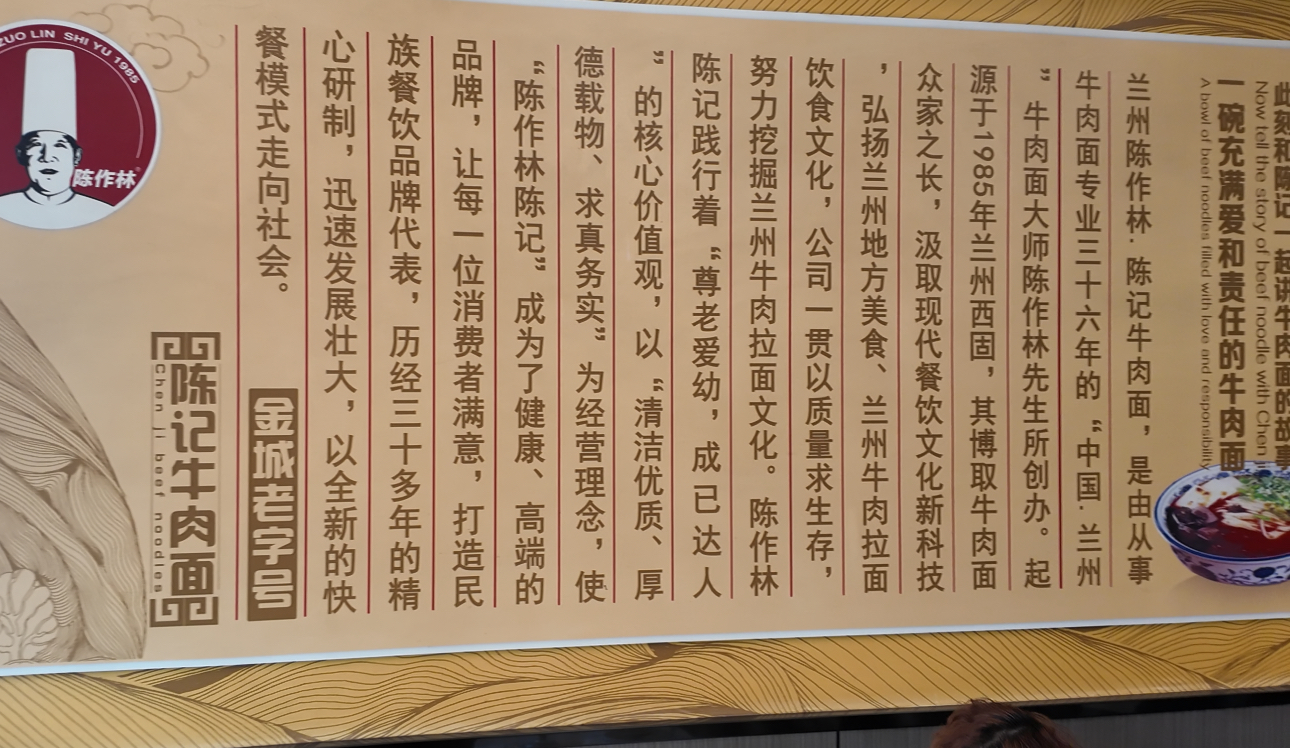 此刻和陈记一起讲牛肉面的故事
Now tell the story of beef noodle with Chen
一碗充满爱和责任的牛肉面
A bowl of beef noodles filled with love and responsibility
兰州陈作林·陈记牛肉面，是由从事
牛肉面专业三十六年的“中国·兰州
”牛肉面大师陈作林先生所创办。起
源于1985年兰州西固，其博取牛肉面
众家之长，汲取现代餐饮文化新科技
，弘扬兰州地方美食、兰州牛肉拉面
饮食文化，公司一贯以质量求生存，
努力挖掘兰州牛肉拉面文化。陈作林
陈记践行着“尊老爱幼，成已达人
”的核心价值观，以“清洁优质、厚
德载物、求真务实”为经营理念，使
“陈作林陈记”成为了健康、高端的
品牌，让每一位消费者满意，打造民
族餐饮品牌代表，历经三十多年的精
心研制，迅速发展壮大，以全新的快
餐模式走向社会。
金城老字号
陈记牛肉面
Chen ji beef noodles
ZUO LIN SHI YU 1985
陈作林